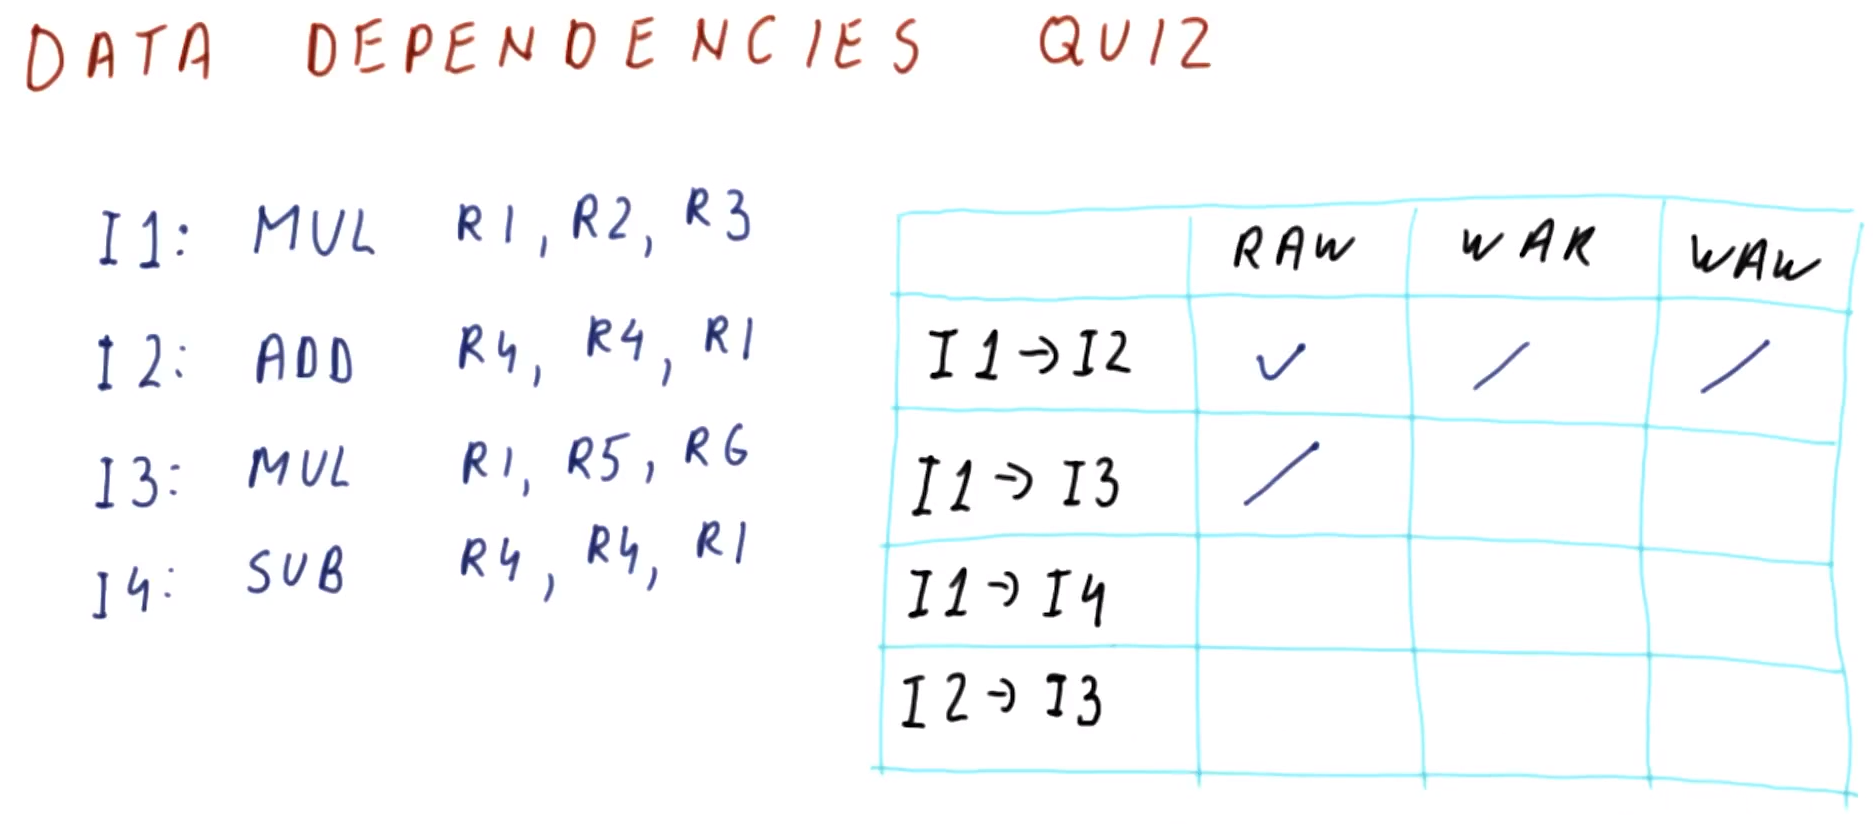 DATA DEPENDENCIES QUIZ
I1: MUL R1, R2, R3
I2: ADD R4, R4, R1
I3: MUL R1, R5, R6
I4: SUB R4, R4, R1
RAW WAR WAW
I1→I2 ✓ / /
I1→I3 /
I1→I4
I2→I3